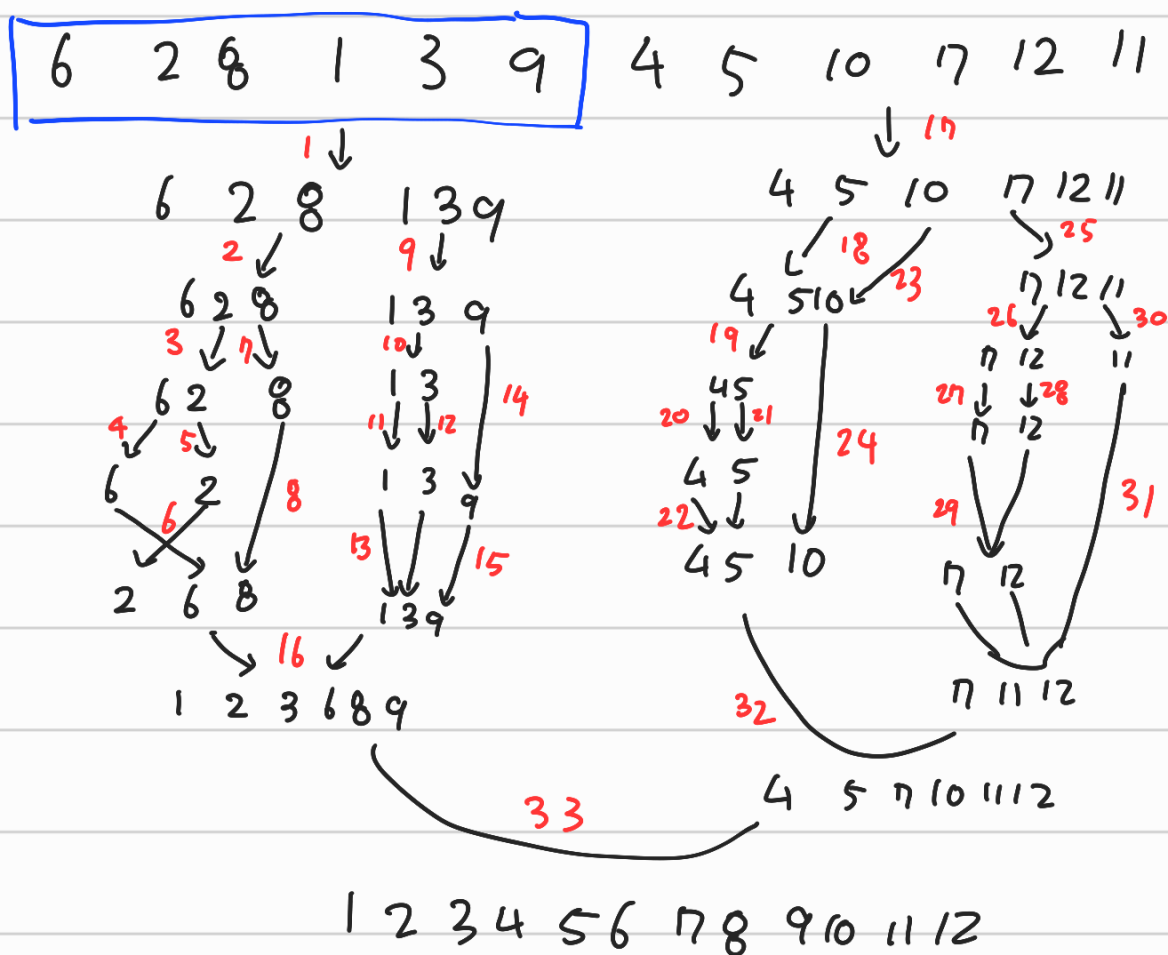 6 2 8 1 3 9 4 5 10 7 12 11
1 17
6 2 8 1 3 9 4 5 10 7 12 11
2 9 18 23 25
6 2 8 1 3 9 4 5 10 7 12 11
3 7 10 14 19 26 30
6 2 8 1 3 4 5 7 12 11
4 5 11 12 20 21 24 27 28
6 2 1 3 9 4 5 7 12
6 8 13 15 22 29 31
2 6 8 1 3 9 4 5 10 7 12
16
1 2 3 6 8 9 32 7 11 12
33 4 5 7 10 11 12
1 2 3 4 5 6 7 8 9 10 11 12